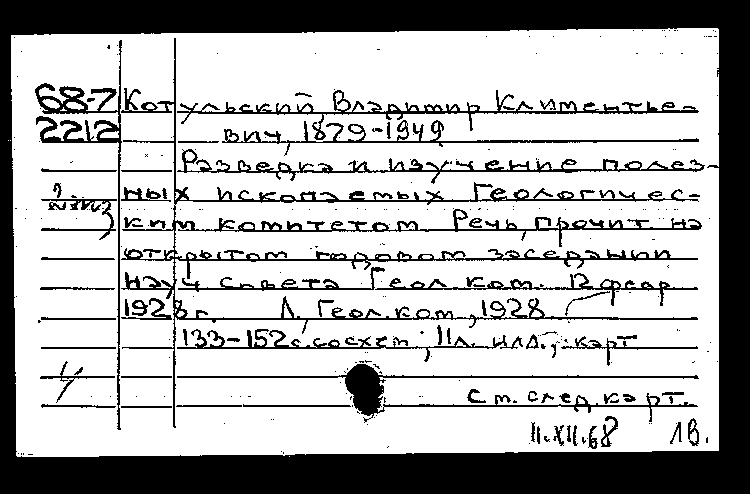 68-7 Котульский, Владимир Климентье-
2212 вич, 1879-1949
Разведка и изучение полез-
ных ископаемых Геологичес-
ким комитетом. Речь, прочит. на
открытом годовом заседании
науч совета Геол. ком. 12 февр
1928 г. Л., Геол. ком., 1928
133-152 с. со схем; 11 л. илл.; карт
См. след. карт.
11.XII.68 1В.